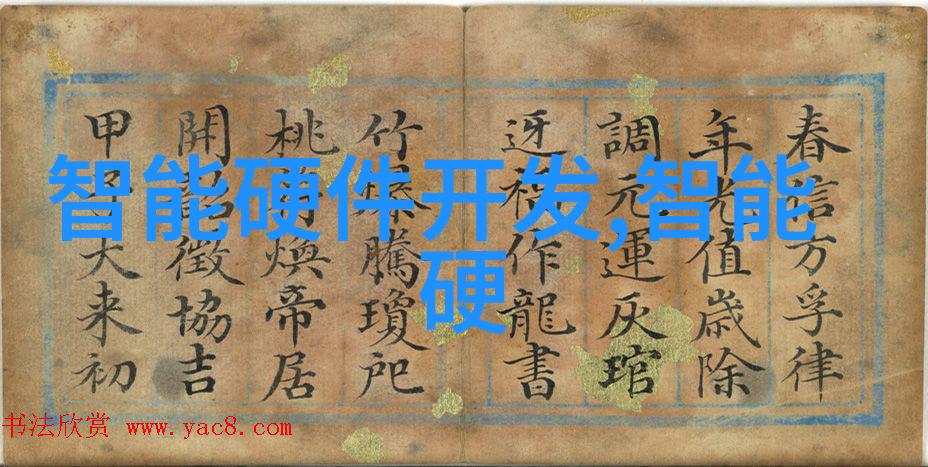 春信方孚律
年光值歲除
調元運灰琯
迓福作龍書
竹爆騰瓊戺
桃符煥帝居
開韶徵協吉
甲子大来初
智能硬件开发,智能
硬
书法欣赏 www.yac8.com